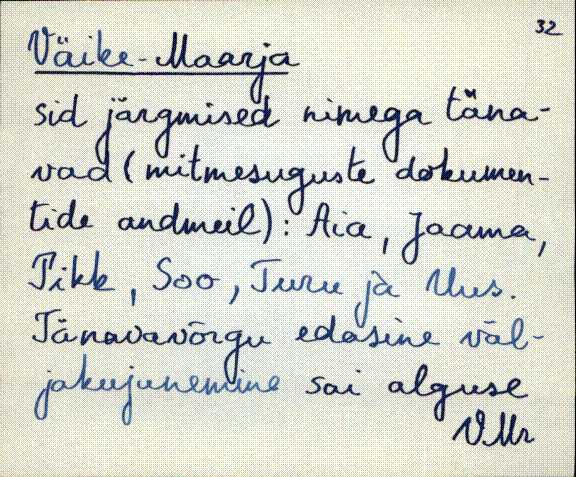 32
Väike-Maarja
sid järgmised nimega täna-
vad (mitmesuguste dokumen-
tide andmeil): Aia, Jaama,
Pikk, Soo, Turu ja Uus.
Tänavavõrgu edasine väl-
jakujunemine sai alguse
V.Mr